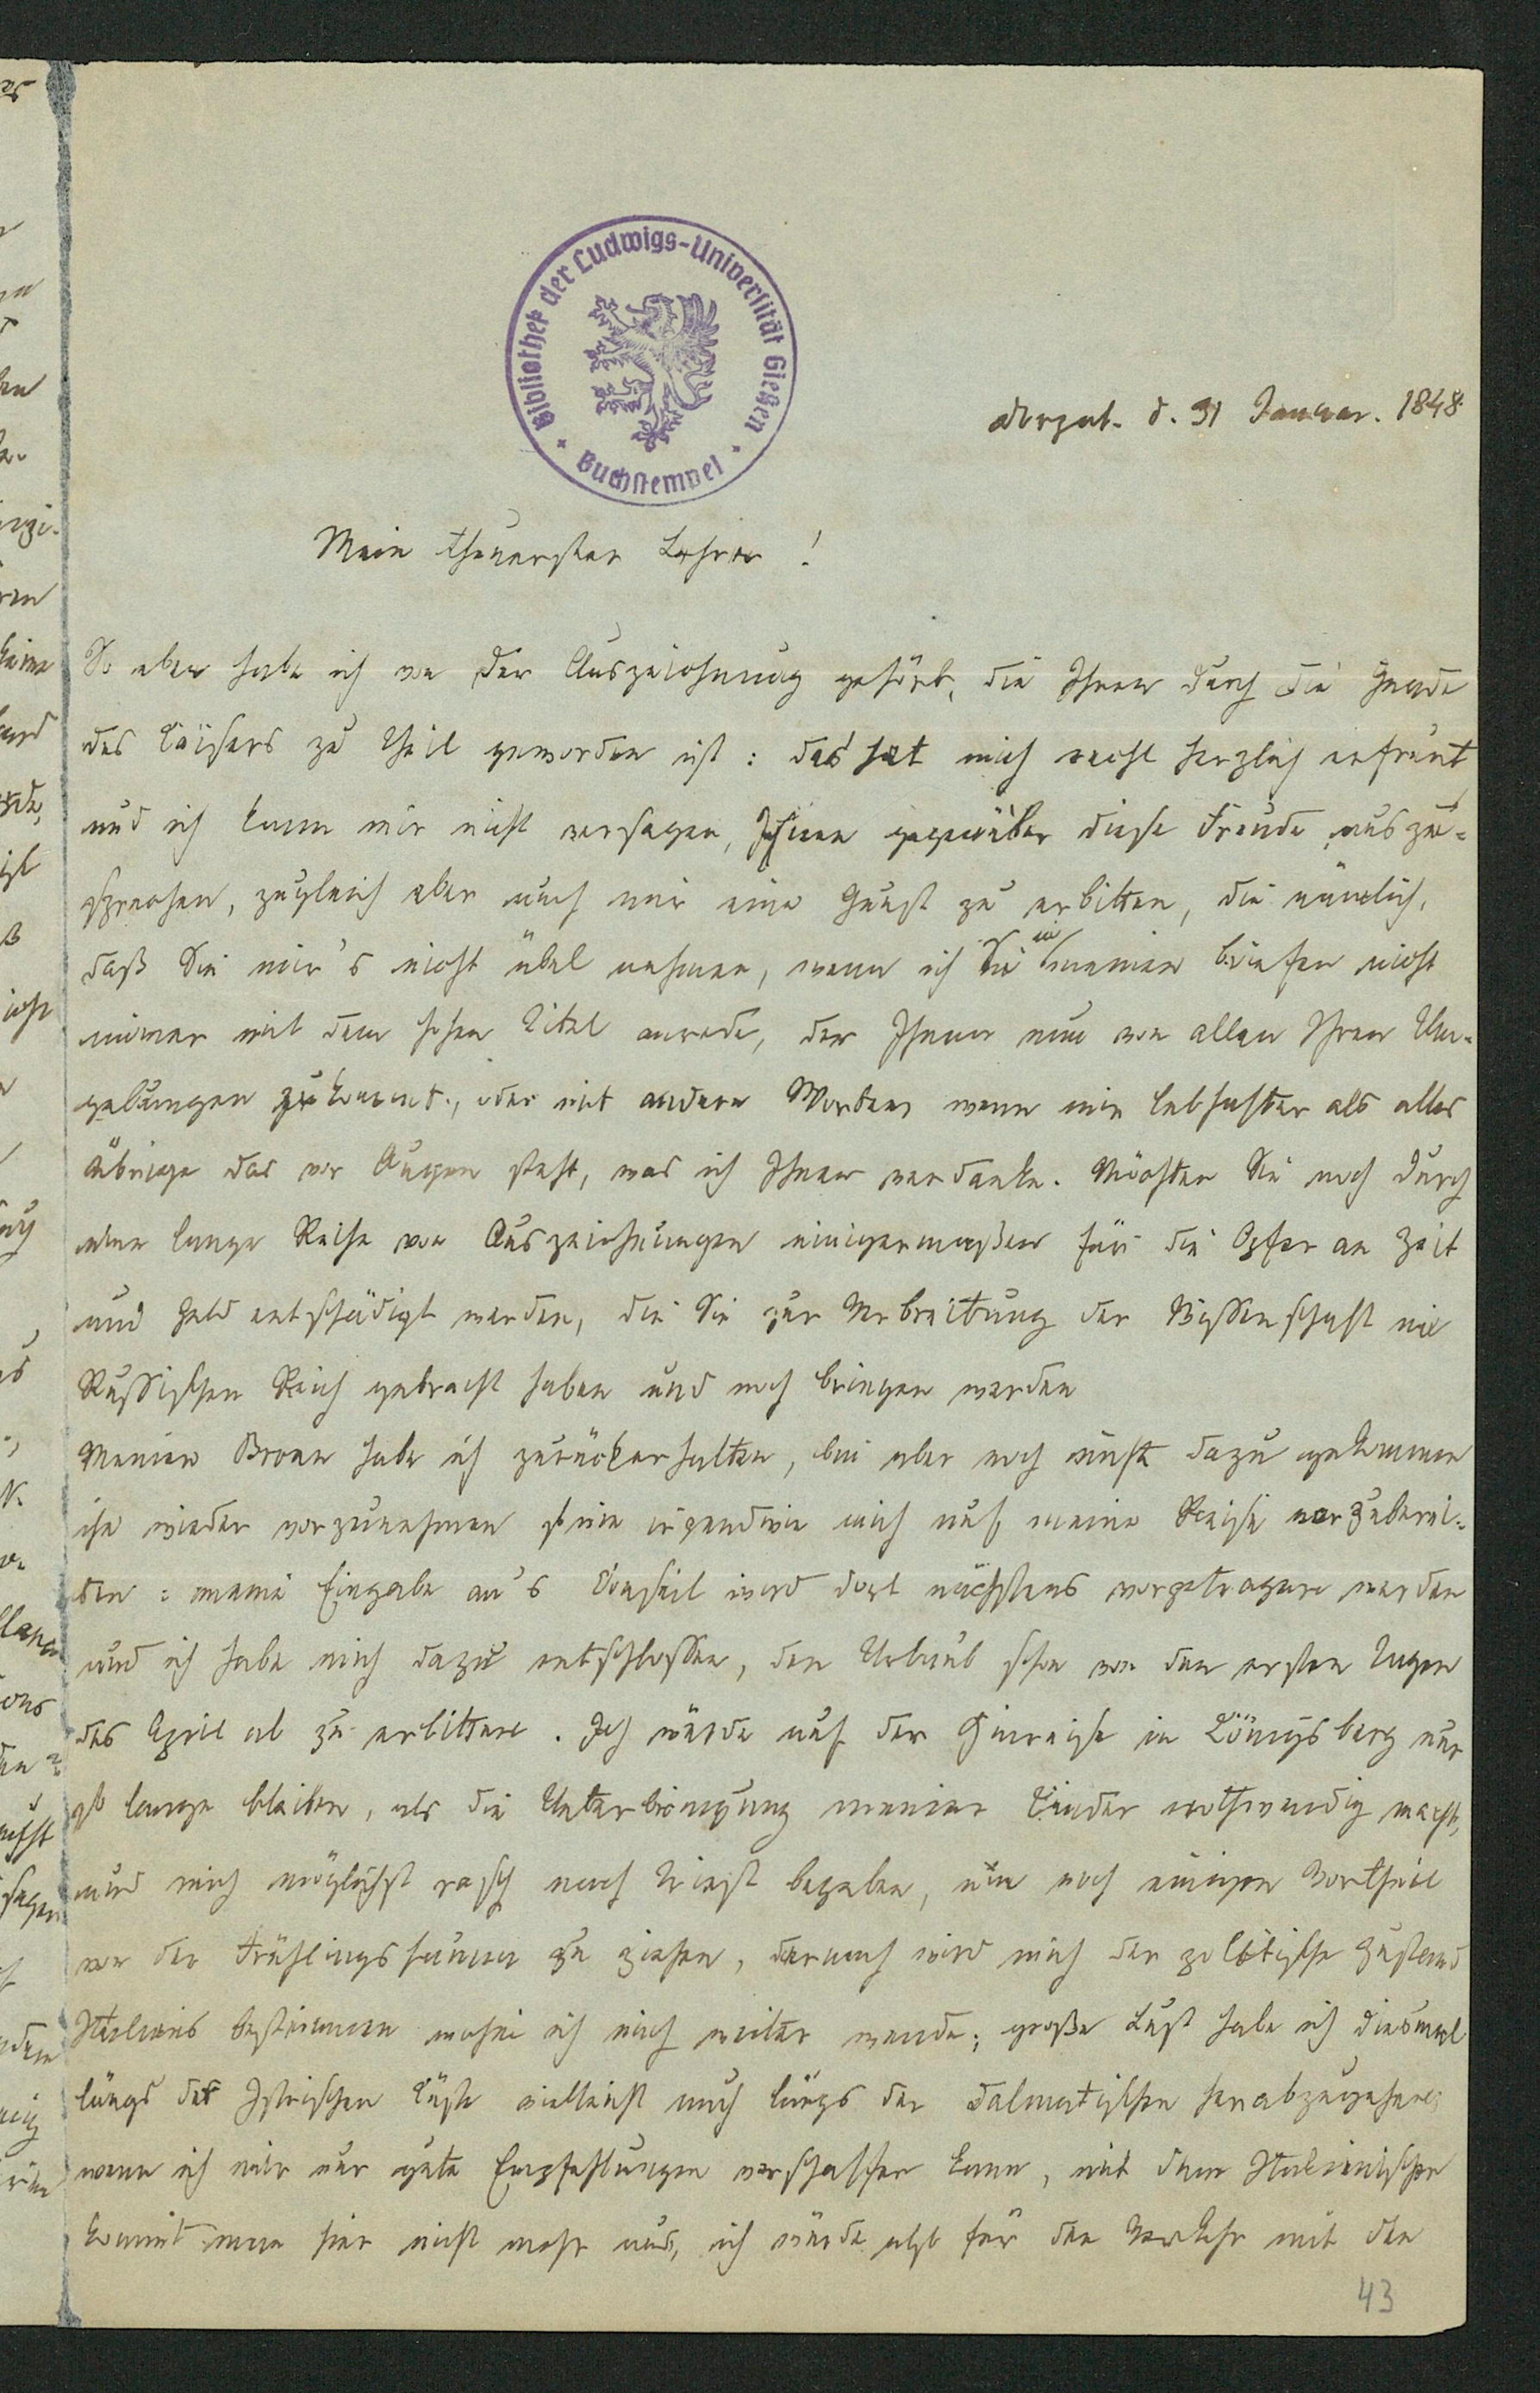 Bibliothek der Ludwigs-Universität Gießen
Buchstempel
Dorpat. d. 31 Januar. 1848.
Mein theuerster Lehrer!
So eben habe ich von der Auszeichnung gehört, die Ihnen durch die Gnade
des Kaisers zu Theil geworden ist: das hat mich recht herzlich erfreut
und ich kann mir nicht versagen, Ihnen gegenüber diese Freude auszu-
sprechen, zugleich aber auch mir eine Gunst zu erbitten, die nämlich,
daß Sie mir's nicht übel nehmen, wenn ich Sie in meinen Briefen nicht
immer mit dem hohen Titel anrede, der Ihnen nun von allen Ihren Um-
gebungen zukommt, oder mit andern Worten wenn mir lebhafter als alles
übrige das vor Augen steht, was ich Ihnen verdanke. Möchten Sie noch durch
eine lange Reihe von Auszeichnungen einigermaßen für die Opfer an Zeit
und Geld entschädigt werden, die Sie zur Verbreitung der Wissenschaft im
Russischen Reich gebracht haben und noch bringen werden
Meinen Bronn habe ich zurückerhalten, bin aber noch nicht dazu gekommen
ihn wieder vorzunehmen irgendwie mich auf meine Reise vorzuberei-
ten: meine Eingabe an's Conseil wird dort nächstens vorgetragen werden
und ich habe mich dazu entschlossen, den Urlaub schon von den ersten Tagen
des April ab zu erbitten. Ich würde auf der Hinreise in Königsberg nur
so lange bleiben, als die Unterbringung meiner Kinder nothwendig macht,
und mich möglichst rasch nach Triest begeben, um noch einigen Vortheil
von der Frühlingsfauna zu ziehen, darnach wird mich der politische Zustand
Italiens bestimmen wohin ich mich weiter wende; große Lust habe ich diesmal
längs der Istrischen Küste vielleicht auch längs der Dalmatischen herabzugehen
wenn ich mir nur gute Empfehlungen verschaffen kann, mit dem Italienischen
kommt man hier nicht mehr aus, ich würde also für den Verkehr mit den
43